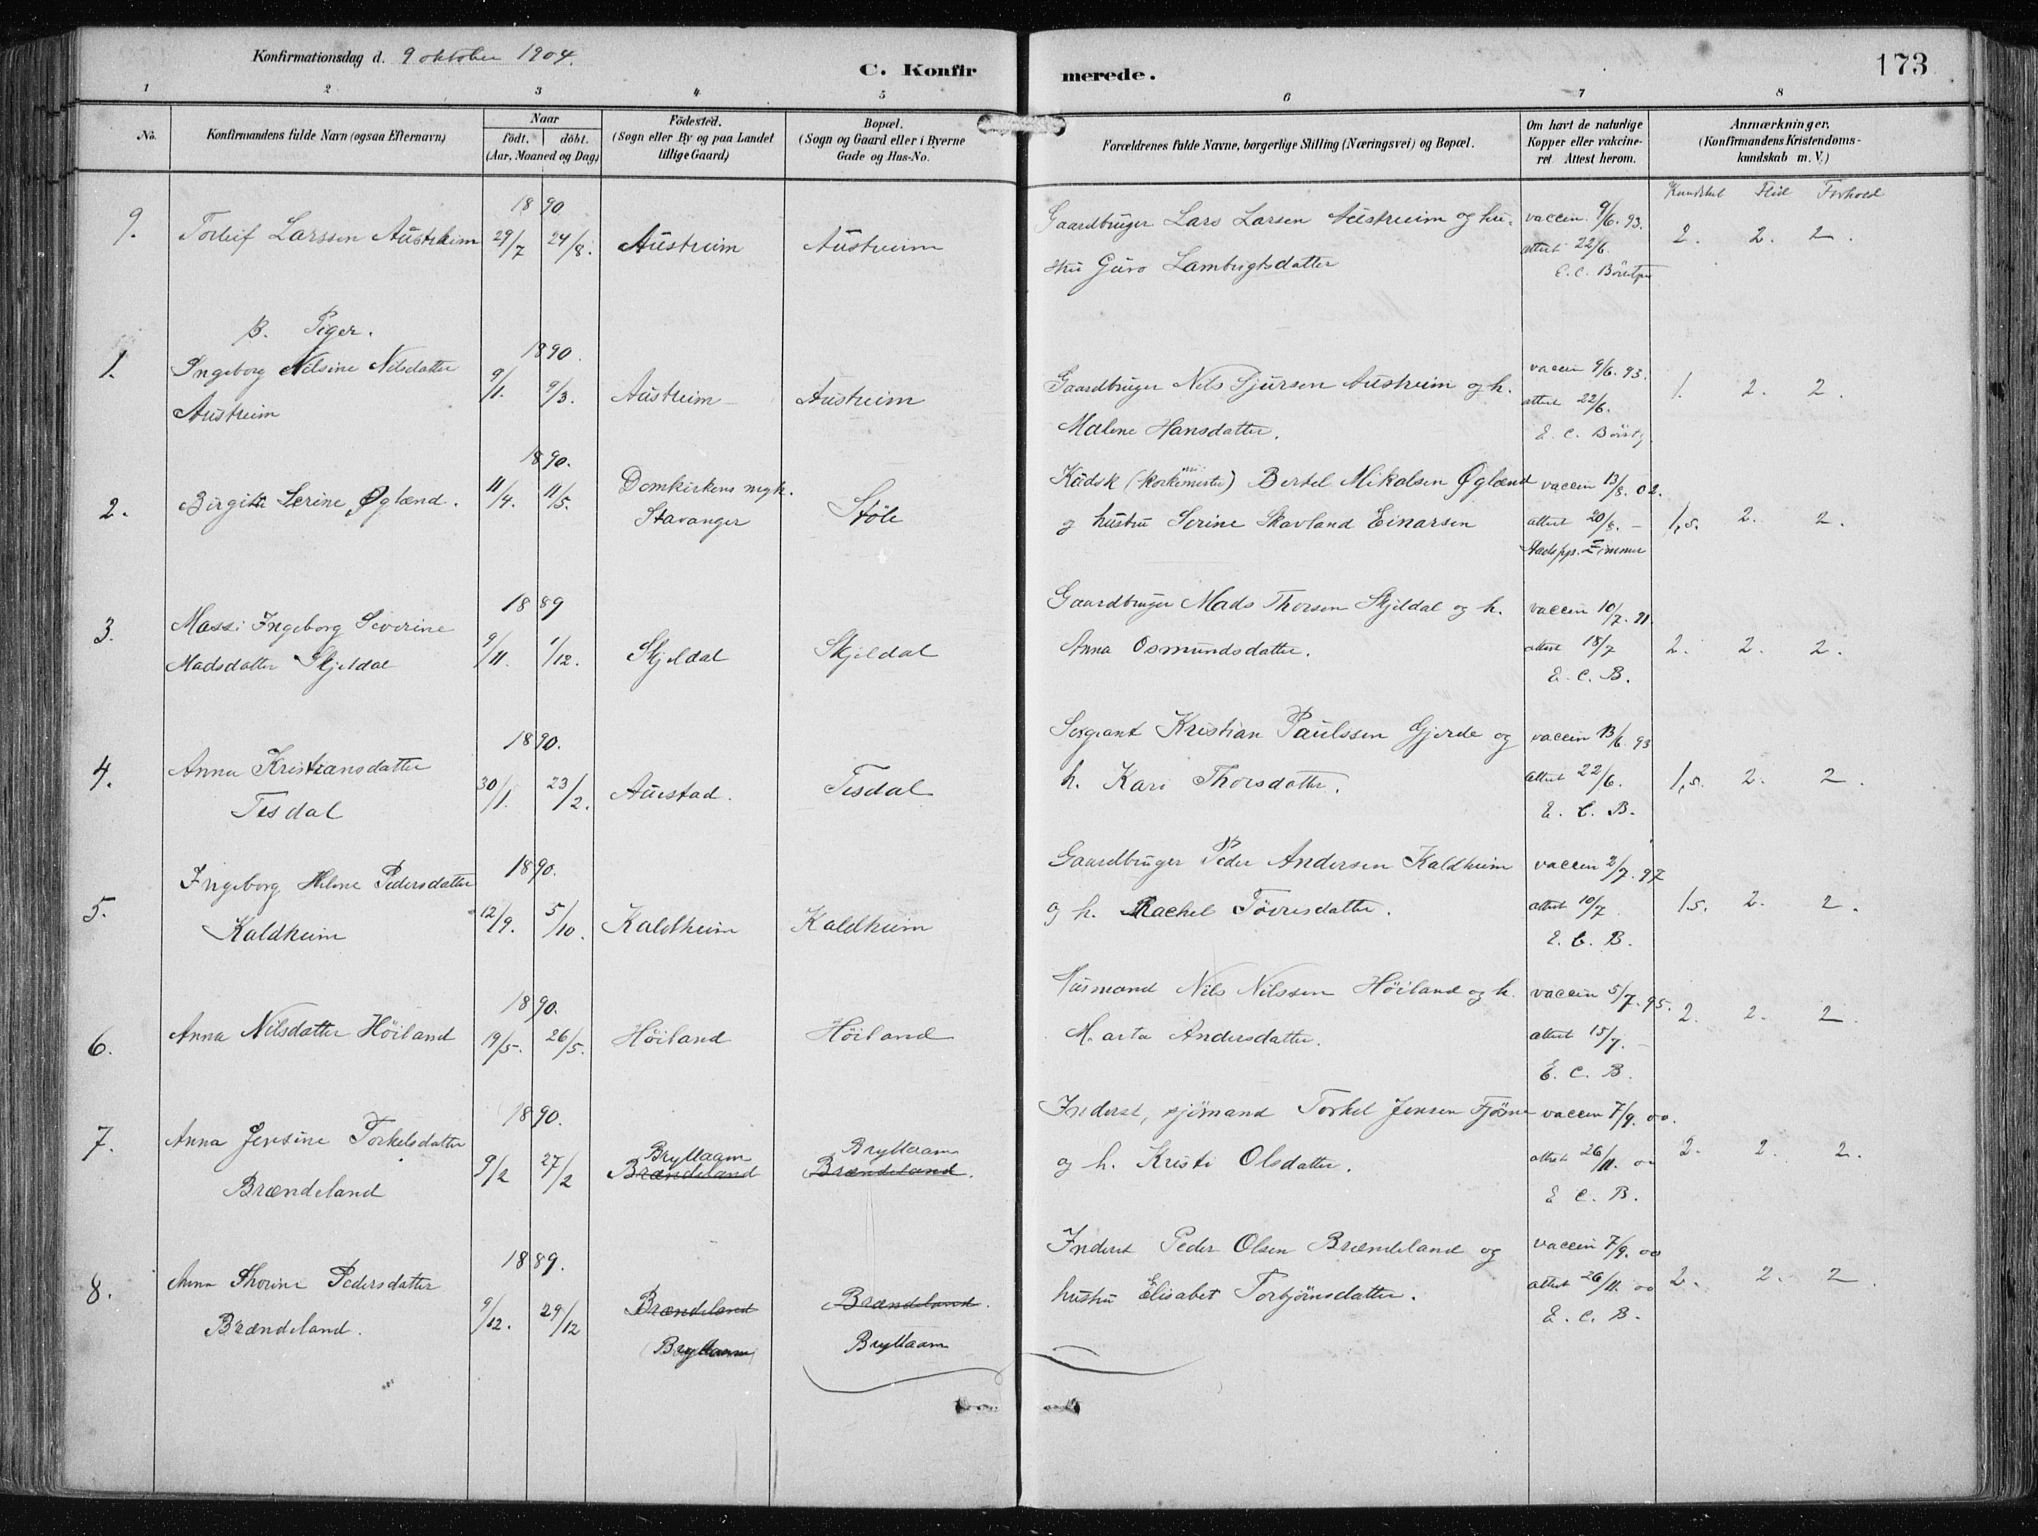 Konfirmationsdag d. 9 oktober 1904.
C. Konfirmerede.
173
1 2 3 4 5 6 7 8
No.
Konfirmandens fulde Navn (ogsaa Efternavn)
Naar
födt. döbt.
(Aar, Maaned og Dag)
Födested.
(Sogn eller By og paa Landet
tillige Gaard)
Bopæl.
(Sogn og Gaard eller i Byerne
Gade og Hus-No.
Forældrenes fulde Navne, borgerlige Stilling (Næringsvei) og Bopæl.
Om havt de naturlige
Kopper eller vakcine-
ret. Attest herom.
Anmærkninger.
(Konfirmandens Kristendoms-
kundskab m. V.)
Kundskab Flid Forhold
1890
9. Torleif Larssen Austrheim 29/7 24/8. Austreim Austreim Gaardbruger Lars Larsen Austreim og hu- vaccin 9/6. 93. 2. 2. 2.
stru Guro Lambrigtsdatter attest 22/6.
E. C.
B. Piger.
1890.
1. Ingeborg Nilsine Nilsdatter 9/1. 9/3. Austreim Austreim Gaardbruger Nils Sjursen Austreim og h. vaccin 9/6. 93. 1. 2. 2.
Austreim Malene Hansdatter. attest 22/6.
E. C.
1890.
2. Birgitte Serine Øglænd. 11/4. 11/5. Domkirkens mgh. Støle (Korkemester) Bertel Mikalsen Øglænd vaccin 13/8. 02. 1,5. 2. 2.
Stavanger og hustru Serine Skavland Einarsen attest 20/8. –
Zimmer
1889
3. Massi Ingeborg Severine 9/11. 1/12. Skjeldal Skjeldal Gaardbruger Mads Thorsen Skjeldal og h. vaccin 10/7. 91. 2. 2. 2.
Madsdatter Skjeldal Anna Osmundsdatter. attest 18/7
E. C. B.
1890.
4. Anna Kristiansdatter 30/1. 23/2. Auestad. Tesdal Sergeant Kristian Paulssen Gjerde og vaccin 13/6. 93 1,5. 2. 2.
Tesdal h. Kari Thorsdatter. attest 22/6.
E. C. B.
1890.
5. Ingeborg Helene Pedersdatter 12/9. 5/10. Kaldheim Kaldheim Gaardbruger Peder Andersen Kaldheim vaccin 2/7. 97 1,5. 2. 2.
Kaldheim og h. Rachel Tøvresdatter. attest 10/7
E. C. B.
1890.
6. Anna Nilsdatter Höiland 19/5. 26/5. Höiland Höiland Husmand Nils Nilssen Höiland og h. vaccin 5/7. 95. 2. 2. 2.
Marta Andersdatter. attest 15/7. –
E. C. B.
1890.
7. Anna Jensine Torkelsdatter 9/2 27/2 Bryllaam Bryllaam Inderst, sjömand Torkel Jensen Fjösne vaccin 7/9. 00. 2. 2. 2.
Brændeland Brændeland Brændeland. og h. Kristi Olsdatter. attest 26/11. 00
E. C. B.
1889.
8. Anna Thorine Pedersdatter 9/12. 29/12 Brændeland Brændeland. Inderst Peder Olsen Brændeland og vaccin 7/9. 00 2. 2. 2.
Brændeland. Bryllaam Bryllaam hustru Elisabet Torbjörnsdatter. attest 26/11. 00
E. C. B.